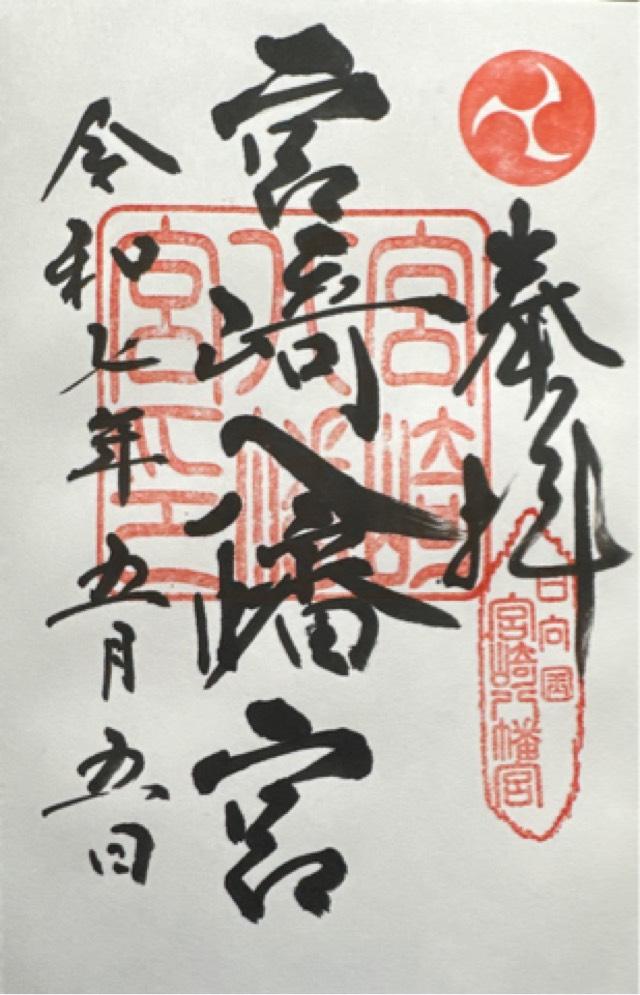 奉拝
日向国
宮崎八幡宮
宮崎八幡宮
宮崎
八幡
宮印
令和七年五月五日